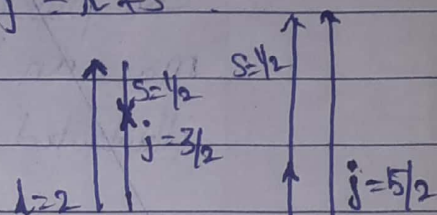 S=1/2 S=1/2
j=3/2
l=2 j=5/2